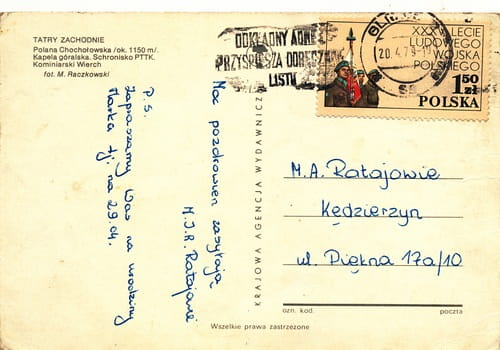 TATRY ZACHODNIE
Polana Chochołowska /ok. 1150 m/.
Kapela góralska. Schronisko PTTK.
Kominiarski Wierch
fot. M. Raczkowski
DOKŁADNY ADRES
PRZYSPIESZA DORĘCZENIE
LISTU
20.4.79
XXX LECIE
LUDOWEGO
WOJSKA
POLSKIEGO
1 50 zł
POLSKA
Moc pozdrowień zasyłają
M.J.R. Ratajowie
P.S.
Zapraszamy Was na urodziny
Marka tj. na 29.04.
KRAJOWA AGENCJA WYDAWNICZA
M.A. Ratajowie
Kędzierzyn
ul. Piękna 17a/10
ozn. kod.
poczta
Wszelkie prawa zastrzeżone